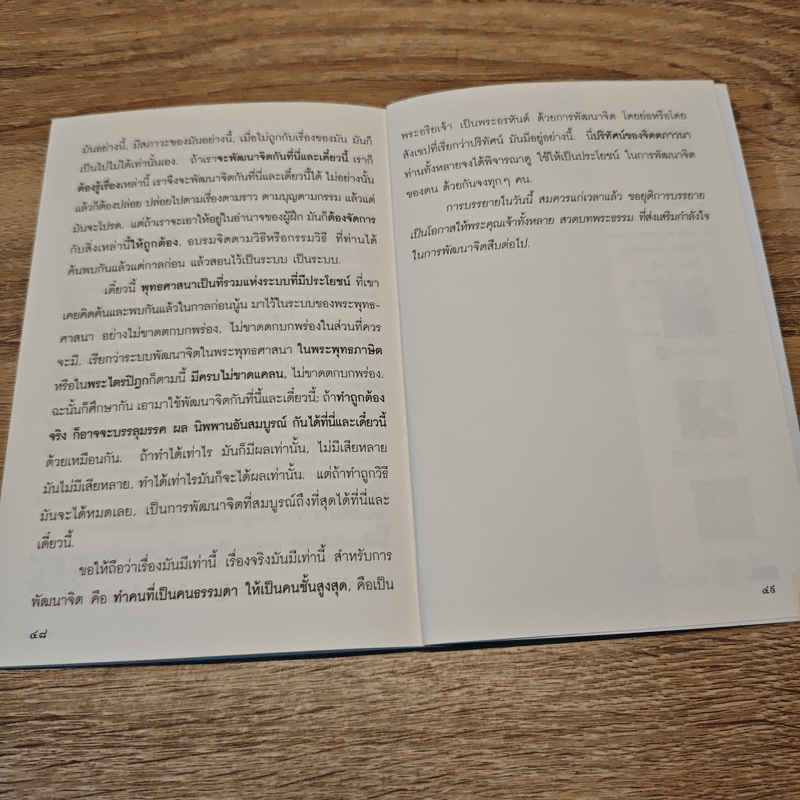 มันอย่างนี้, มีสภาวะของมันอย่างนี้, เมื่อไม่ถูกกับเรื่องของมัน มันก็
เป็นไปไม่ได้เท่านั้นเอง. ถ้าเราจะพัฒนาจิตกันที่นี่และเดี๋ยวนี้ เราก็
ต้องรู้เรื่องเหล่านี้ เราจึงจะพัฒนาจิตกันที่นี่และเดี๋ยวนี้ได้ ไม่อย่างนั้น
แล้วก็ต้องปล่อย ปล่อยไปตามเรื่องตามราว ตามบุญตามกรรม แล้วแต่
มันจะโปรด. แต่ถ้าเราจะเอาให้อยู่ในอำนาจของผู้ฝึก มันก็ต้องจัดการ
กับสิ่งเหล่านี้ให้ถูกต้อง, อบรมจิตตามวิธีหรือกรรมวิธี ที่ท่านได้
ค้นพบกันแล้วแต่กาลก่อน แล้วสอนไว้เป็นระบบ เป็นระบบ.
เดี๋ยวนี้ พุทธศาสนาเป็นที่รวมแห่งระบบที่มีประโยชน์ ที่เขา
เคยคิดค้นและพบกันแล้วในกาลก่อนนู้น มาไว้ในระบบของพระพุทธ-
ศาสนา อย่างไม่ขาดตกบกพร่อง, ไม่ขาดตกบกพร่องในส่วนที่ควร
จะมี, เรียกว่าระบบพัฒนาจิตในพระพุทธศาสนา ในพระพุทธภาษิต
หรือในพระไตรปิฎกก็ตามนี้ มีครบไม่ขาดแคลน, ไม่ขาดตกบกพร่อง.
ฉะนั้นก็ศึกษากัน เอามาใช้พัฒนาจิตกันที่นี่และเดี๋ยวนี้; ถ้าทำถูกต้อง
จริง ก็อาจจะบรรลุมรรค ผล นิพพานอันสมบูรณ์ กันได้ที่นี่และเดี๋ยวนี้
ด้วยเหมือนกัน. ถ้าทำได้เท่าไร มันก็มีผลเท่านั้น, ไม่มีเสียหลาย
มันไม่มีเสียหลาย, ทำได้เท่าไรมันก็จะได้ผลเท่านั้น. แต่ถ้าทำถูกวิธี
มันจะได้หมดเลย, เป็นการพัฒนาจิตที่สมบูรณ์ถึงที่สุดได้ที่นี่และ
เดี๋ยวนี้.
ขอให้ถือว่าเรื่องมันมีเท่านี้ เรื่องจริงมันมีเท่านี้ สำหรับการ
พัฒนาจิต คือ ทำคนที่เป็นคนธรรมดา ให้เป็นคนชั้นสูงสุด, คือเป็น
๔๘
พระอริยเจ้า เป็นพระอรหันต์ ด้วยการพัฒนาจิต โดยย่อหรือโดย
สังเขปที่เรียกว่าปริทัศน์ มันมีอยู่อย่างนี้. นี่ปริทัศน์ของจิตตภาวนา
ท่านทั้งหลายจงได้พิจารณาดู ใช้ให้เป็นประโยชน์ ในการพัฒนาจิต
ของตน ด้วยกันจงทุกๆ คน.
การบรรยายในวันนี้ สมควรแก่เวลาแล้ว ขอยุติการบรรยาย
เป็นโอกาสให้พระคุณเจ้าทั้งหลาย สวดบทพระธรรม ที่ส่งเสริมกำลังใจ
ในการพัฒนาจิตสืบต่อไป.
๔๙